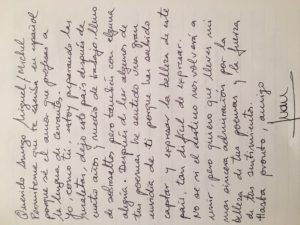 Querido Amigo Miguel / Michel
Permiteme que te escriba en español
porque sé el amor que profesas a
la lengua de Cervantes.
Yo, como tú, estoy preparando las
maletas, dejo este país después de
cuatro años y medio de trabajo, lleno
de sobresaltos pero también con alguna
alegría. Después de leer algunos de
tus poemas he sentido una gran
envidia de ti porque has sabido
captar y expresar la belleza de este
país, tan difícil de expresar.
No se si el destino nos volverá a
unir, pero quiero que lleves mi
mas sincera admiración por la
belleza de tus poemas y la fuerza
de tus sentimientos.
Hasta pronto, amigo
Juan